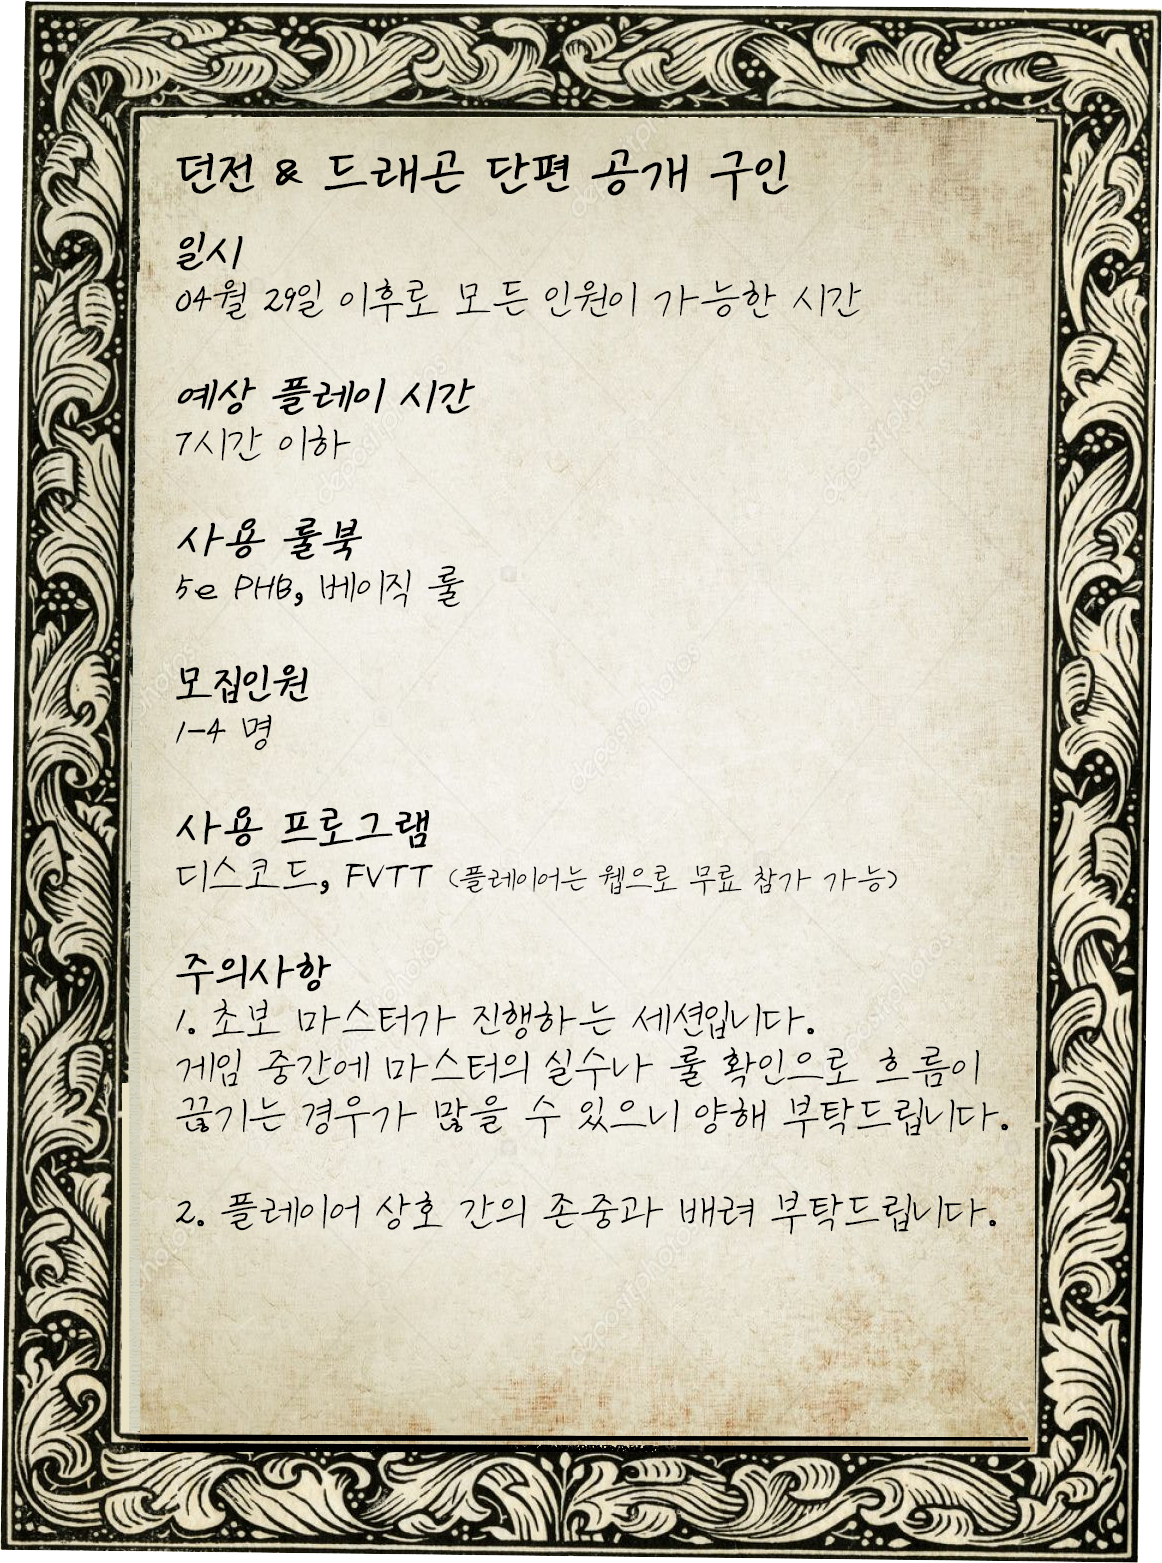 던전 & 드래곤 단편 공개 구인
일시
04월 29일 이후로 모든 인원이 가능한 시간
예상 플레이 시간
7시간 이하
사용 룰북
5e PHB, 베이직 룰
모집인원
1-4 명
사용 프로그램
디스코드, FVTT (플레이어는 웹으로 무료 참가 가능)
주의사항
1. 초보 마스터가 진행하는 세션입니다.
게임 중간에 마스터의 실수나 룰 확인으로 흐름이
끊기는 경우가 많을 수 있으니 양해 부탁드립니다.
2. 플레이어 상호 간의 존중과 배려 부탁드립니다.
depositphotos
depositphotos
depositphotos
depositphotos
depositphotos
depositphotos
depositphotos
depositphotos